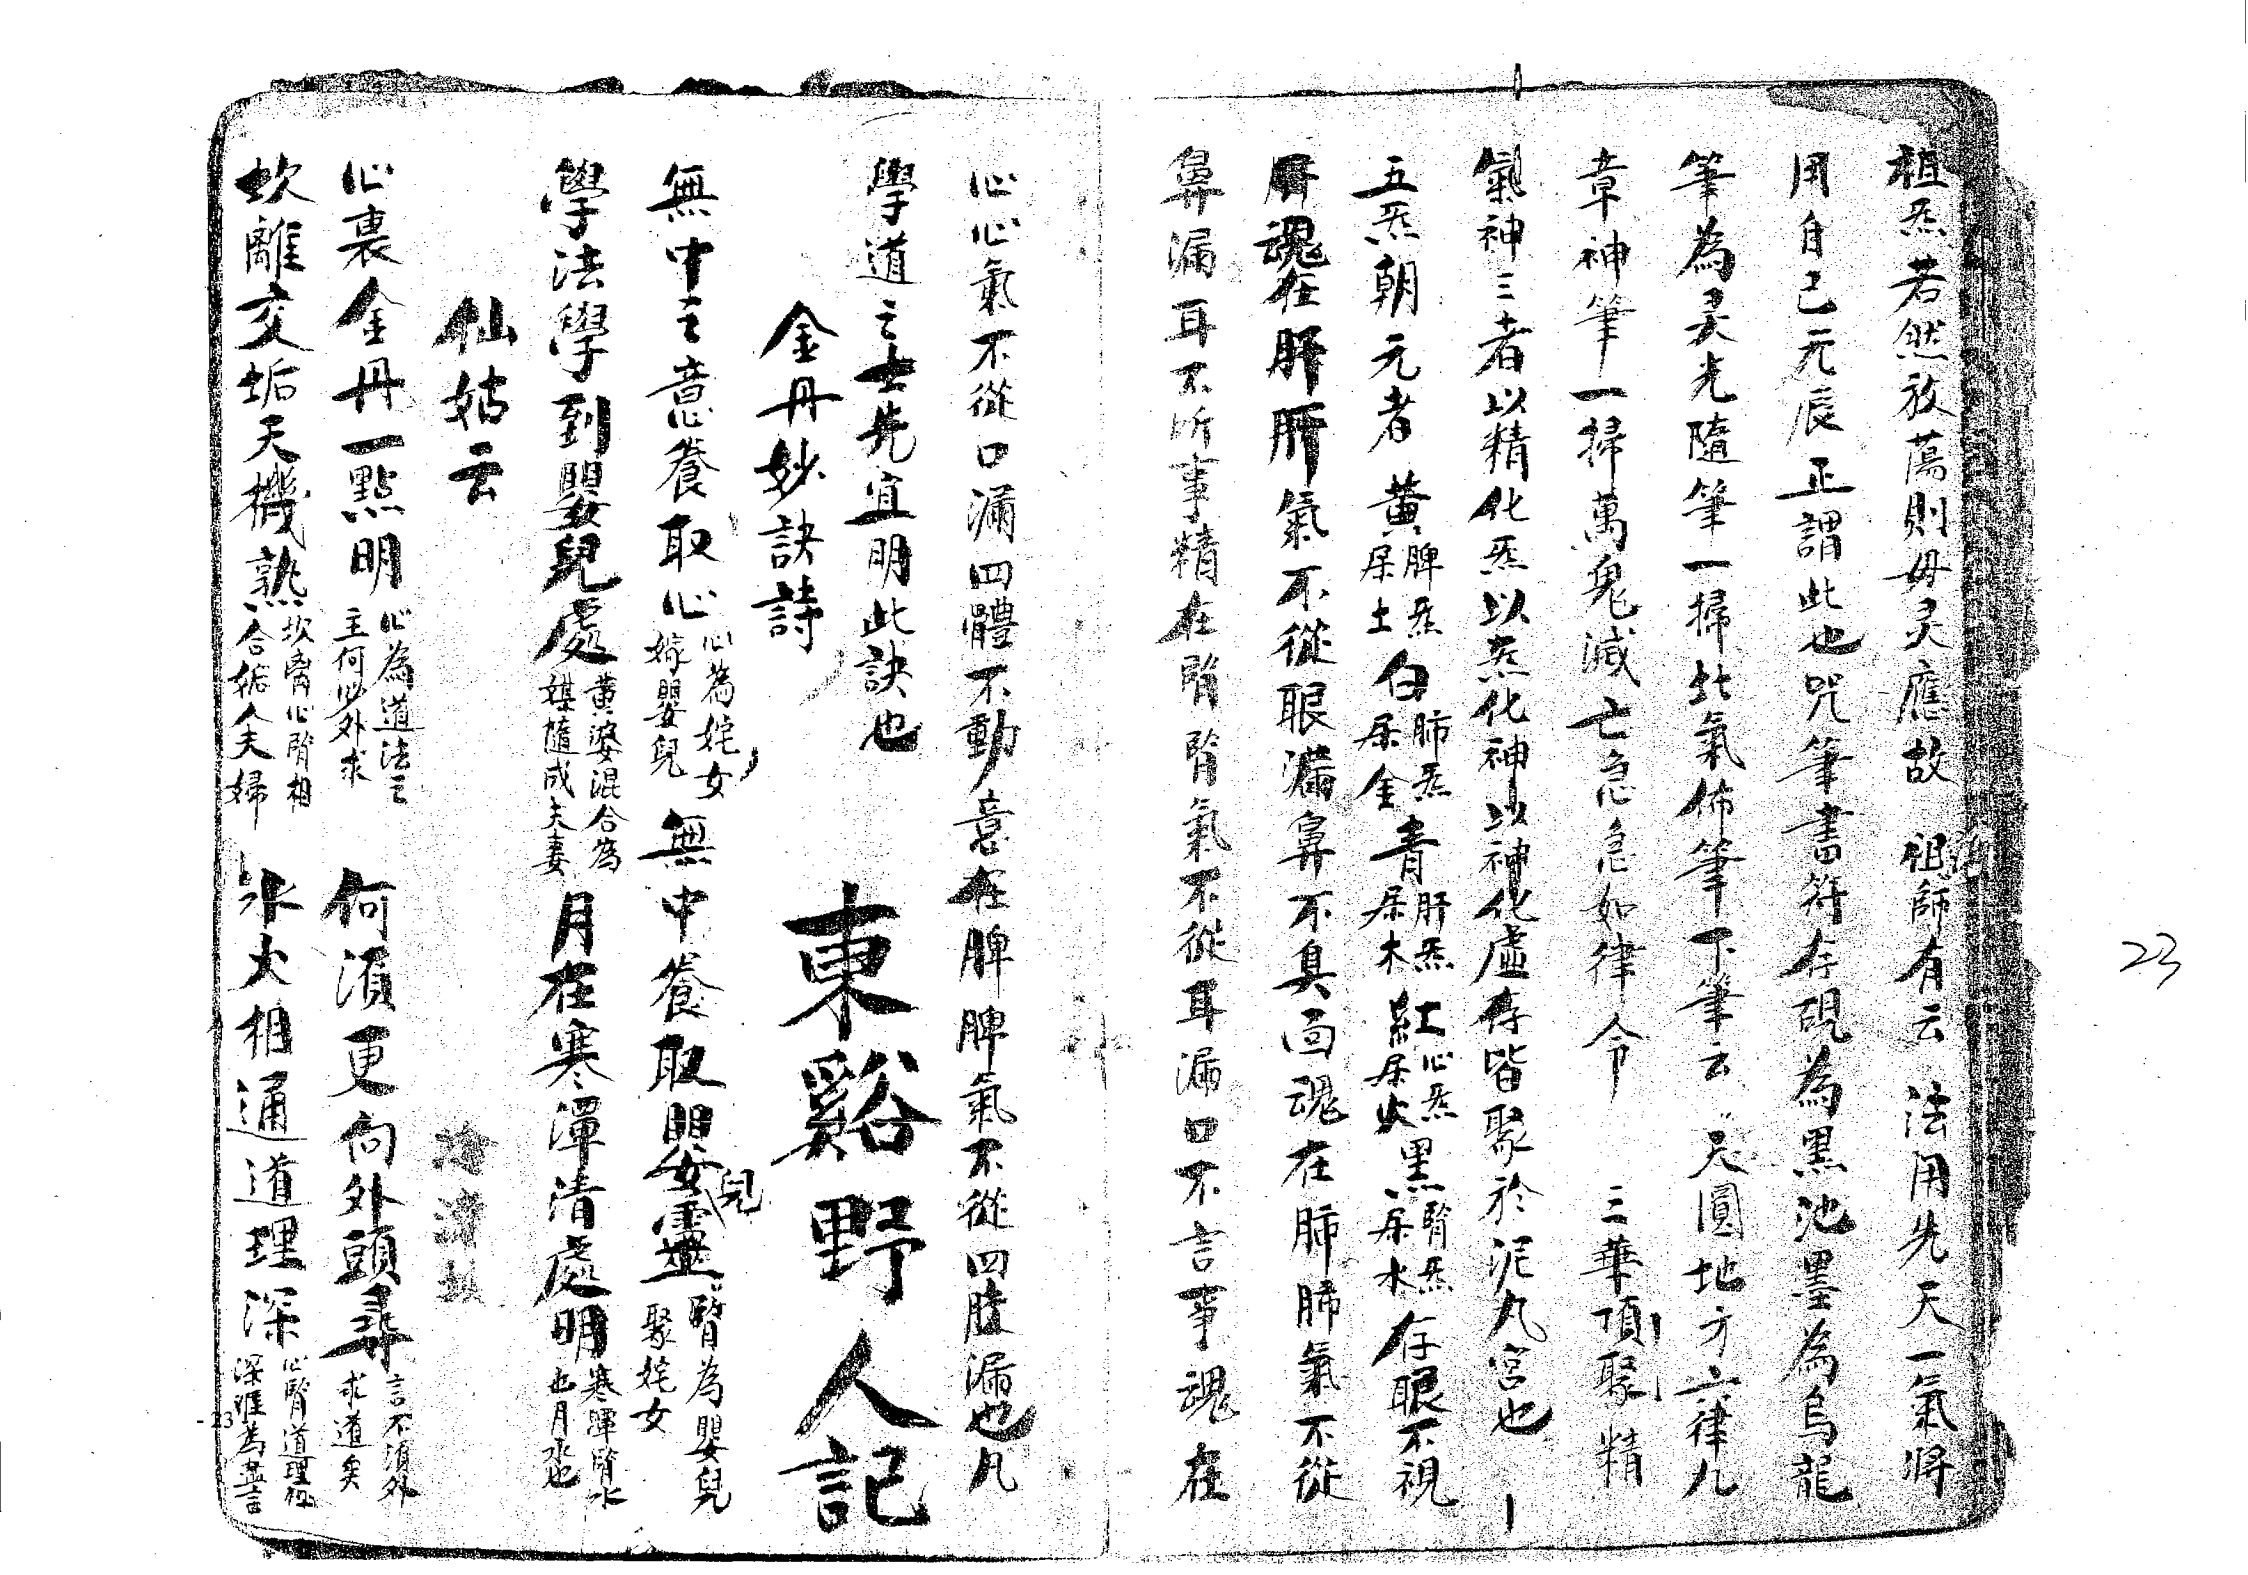 祖炁若然放蕩則毋灵應故　祖師有云　法用先天一氣將
用自己元辰正謂此也咒筆書符存硯為黑池墨為烏龍
筆為灵光隨筆一掃此氣佈筆下筆云　天圓地方六律九
章神筆一掃萬鬼滅亡急急如律令　三華頂聚精
氣神三者以精化炁以炁化神以神化虛存皆聚於泥丸宮也
五炁朝元者黃脾炁屬土白肺炁屬金青肝炁屬木紅心炁屬火黑腎炁屬水存眼不視
魂在肝肝氣不從眼漏鼻不臭面魂在肺肺氣不從
鼻漏耳不听事精在腎腎氣不從耳漏口不言事魂在
心心氣不從口漏四體不動意在脾脾氣不從四肢漏也凡
學道之士先宜明此訣也
金丹妙訣詩　東谿野人記
無中之意養取心心為姹女嫁嬰兒　無中養取嬰兒靈腎為嬰兒聚姹女
學法學到嬰兒處黃婆混合為媒隨成夫妻　月在寒潭清處明寒潭腎水也月水也
仙姑云
心裏金丹一點明心為道法之主何必外求　何須更向外頭尋言不須外求道矣
坎離交垢天機熟坎离心腎相合姤人夫婦　水火相通道理深心腎道理極深難為盡言
23
-23